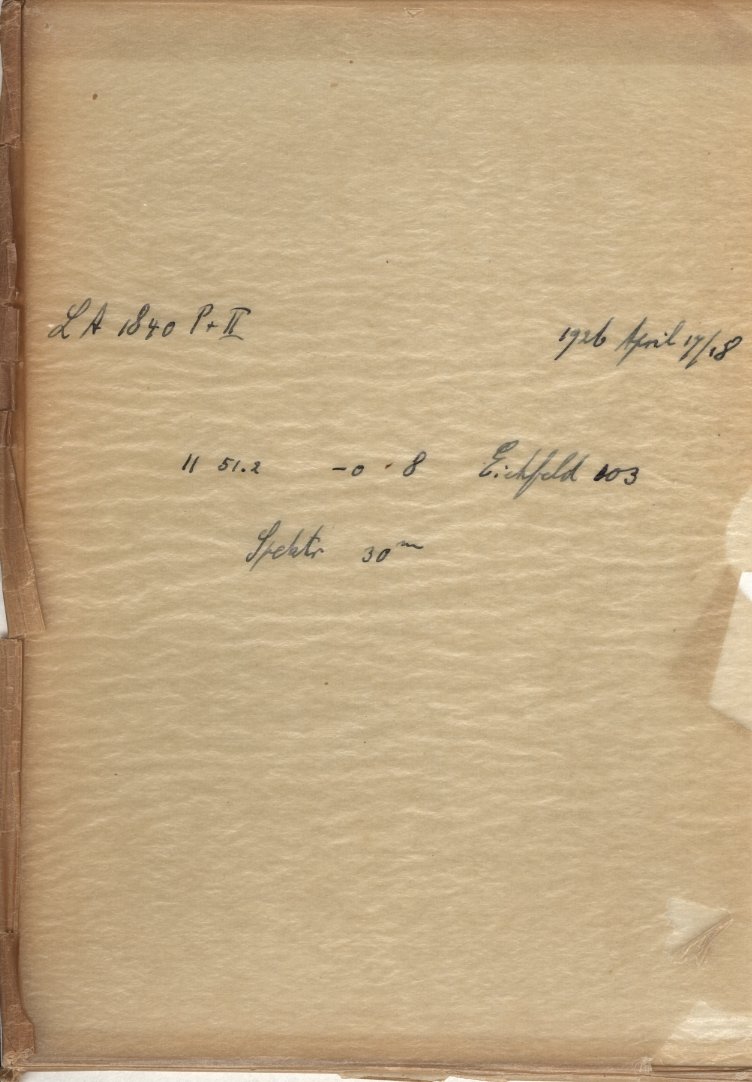 LA 1840 P+II 1926 April 17/18
11 51.2 -0 · 8 Eichfeld 103
Spektr 30ᵐ